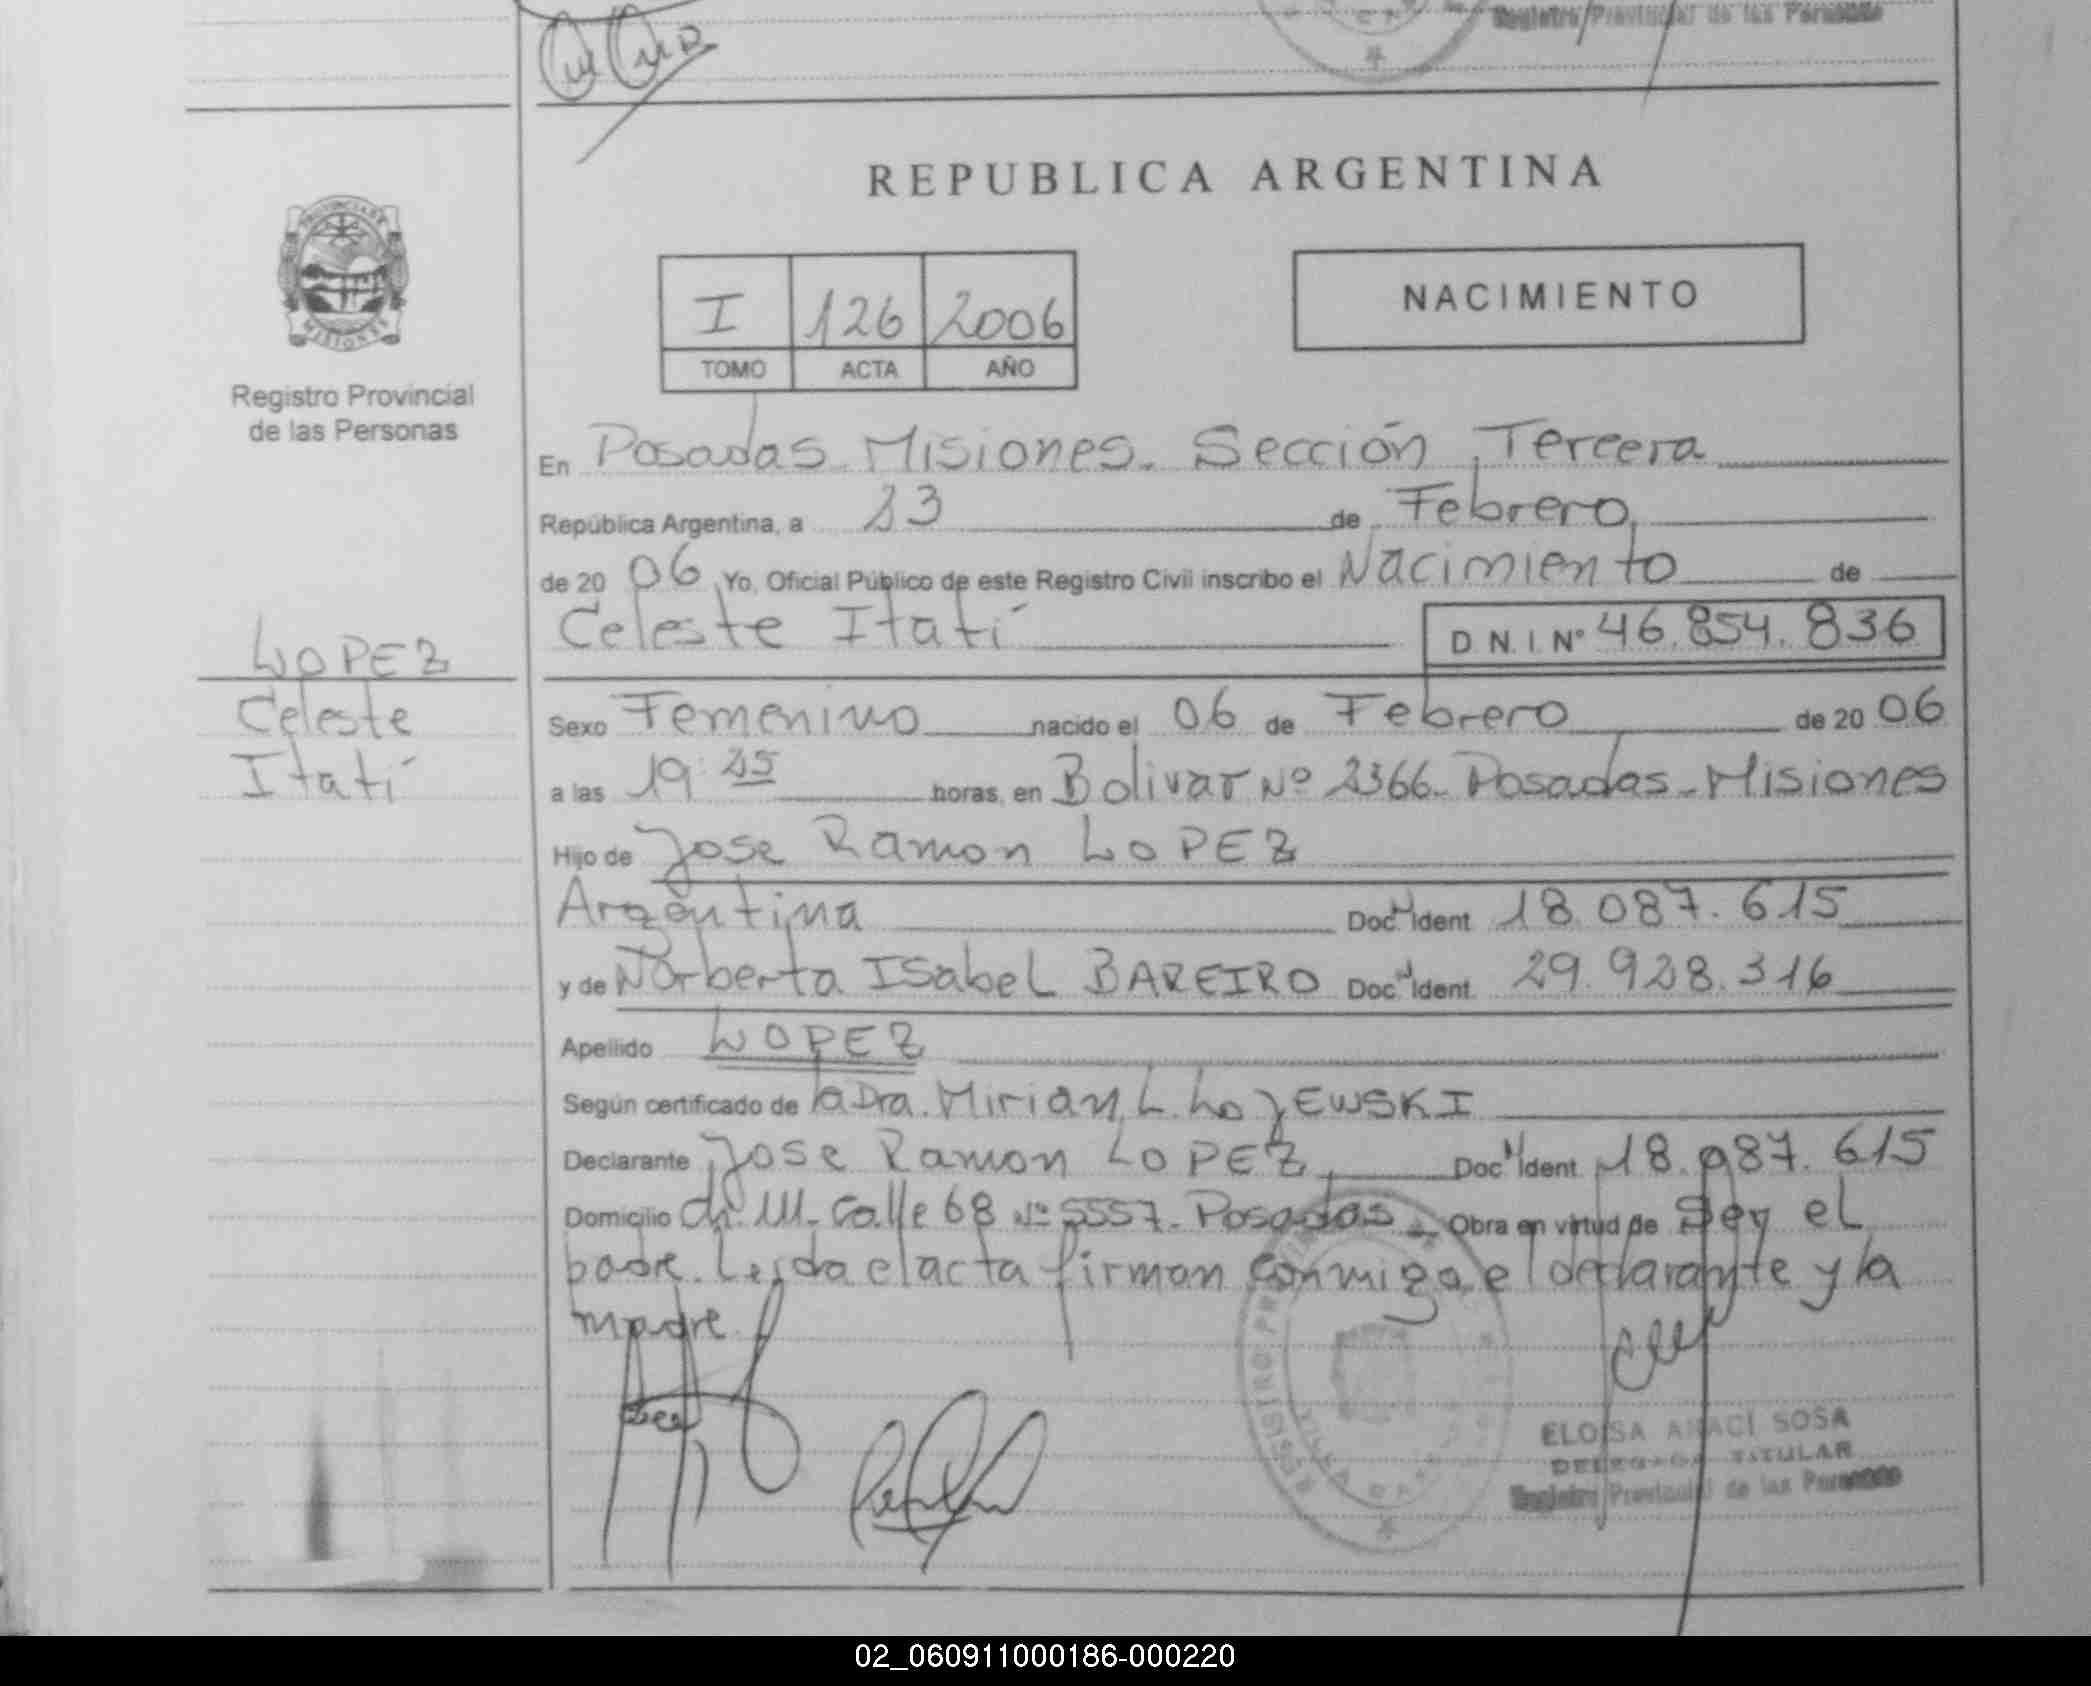 Registro Provincial de las Personas
REPUBLICA ARGENTINA
PROVINCIA DE
MISIONES
Registro Provincial
de las Personas
I 126 2006
TOMO ACTA AÑO
NACIMIENTO
En Posadas Misiones. Sección Tercera
República Argentina, a 23 de Febrero
de 20 06 Yo, Oficial Público de este Registro Civil inscribo el Nacimiento de
Celeste Itatí D.N.I. Nº 46.854.836
LOPEZ
Celeste
Itatí
Sexo Femenino nacido el 06 de Febrero de 20 06
a las 19:25 horas, en Bolivar Nº 2366. Posadas-Misiones
Hijo de Jose Ramon LOPEZ
Argentina Doc N Ident 18.087.615
y de Norberta Isabel BAREIRO Doc N Ident. 29.928.316
Apellido LOPEZ
Según certificado de la Dra. Mirian L. LOJEWSKI
Declarante Jose Ramon LOPEZ Doc N Ident 18.087.615
Domicilio Ch. Calle 68 Nº 5557. Posadas Obra en virtud de Ser el
padre. Leída el acta firman conmigo, el declarante y la
madre
ELOISA ANACI SOSA
DELEGADA TITULAR
Registro Provincial de las Personas
02_060911000186-000220